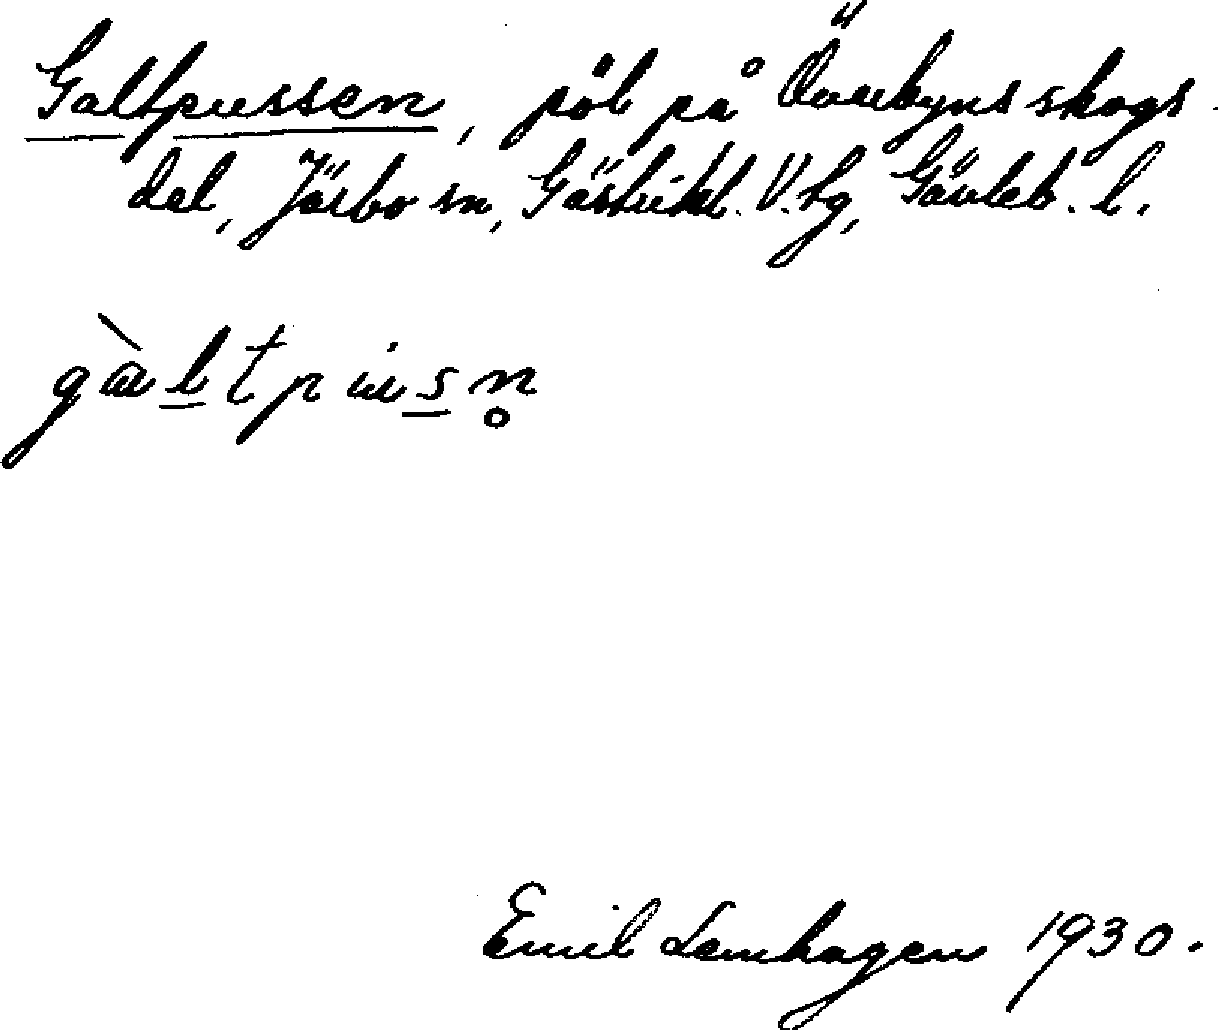 Galtpussen, pöl på Överbyns skogs-
del, Järbo sn, Gästrikl. V. tg, Gävleb. l.
gàltpusn̥
Emil Lemhagen 1930.